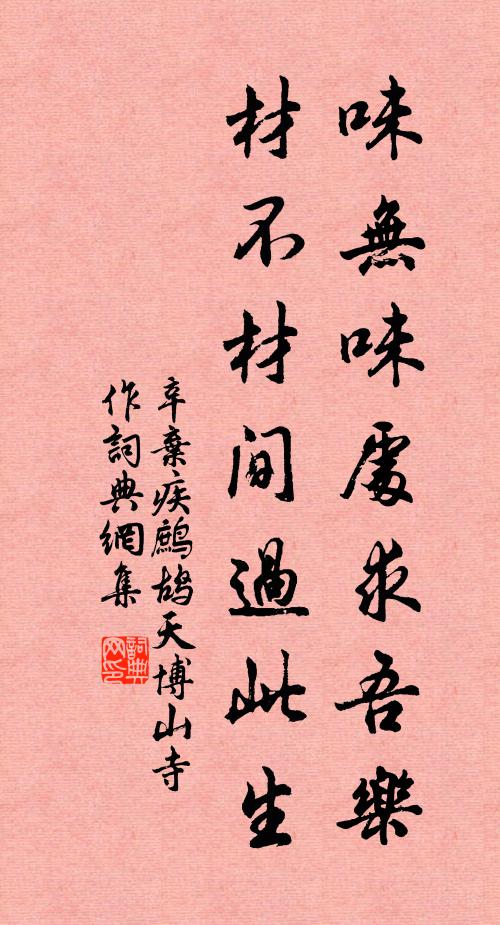 味無味處求吾樂
材不材間過此生
辛棄疾鷓鴣天博山寺
作詞典網集
詞典网印